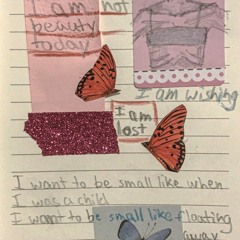 I am not
beauty
today
I am wishing
I am
lost
I want to be small like when
I was a child
I want to be small like floating
away